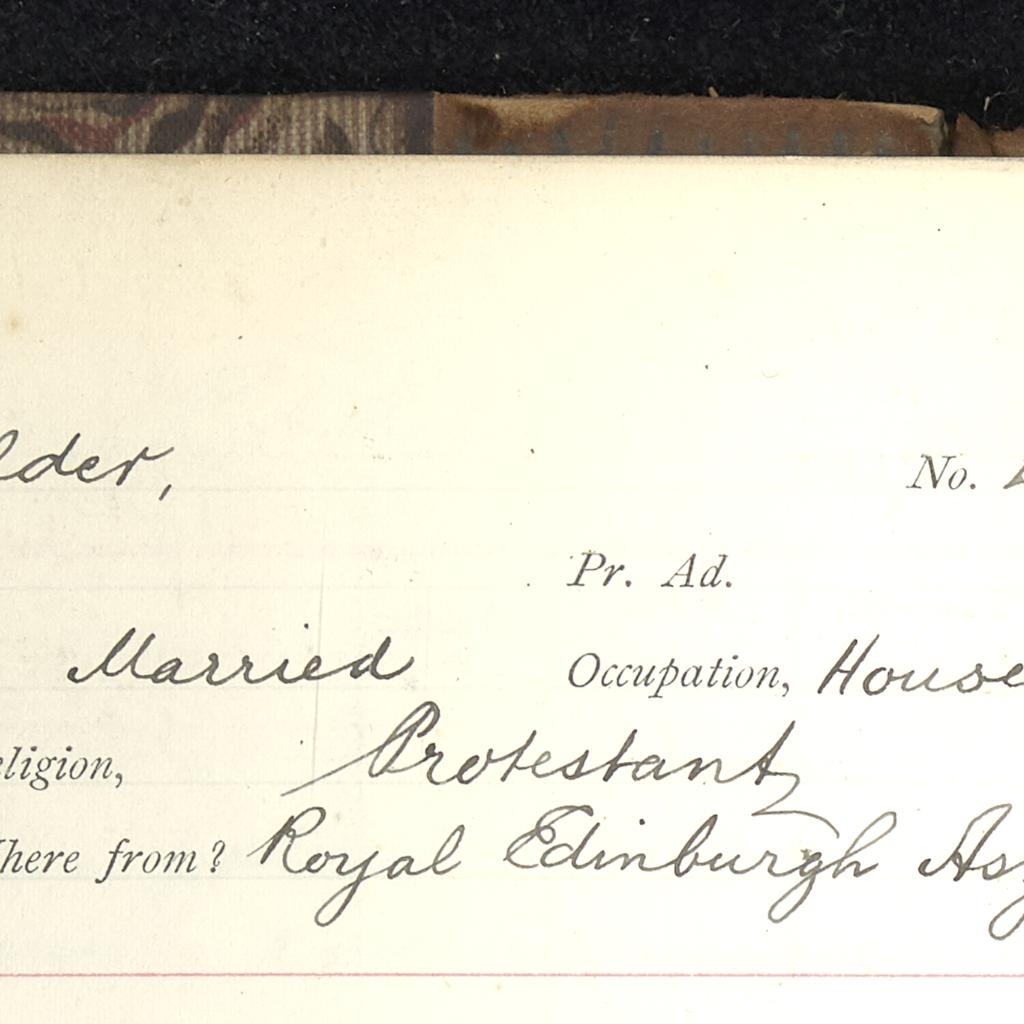 lder, No.
Pr. Ad.
Married Occupation, House
eligion, Protestant
here from? Royal Edinburgh Asy